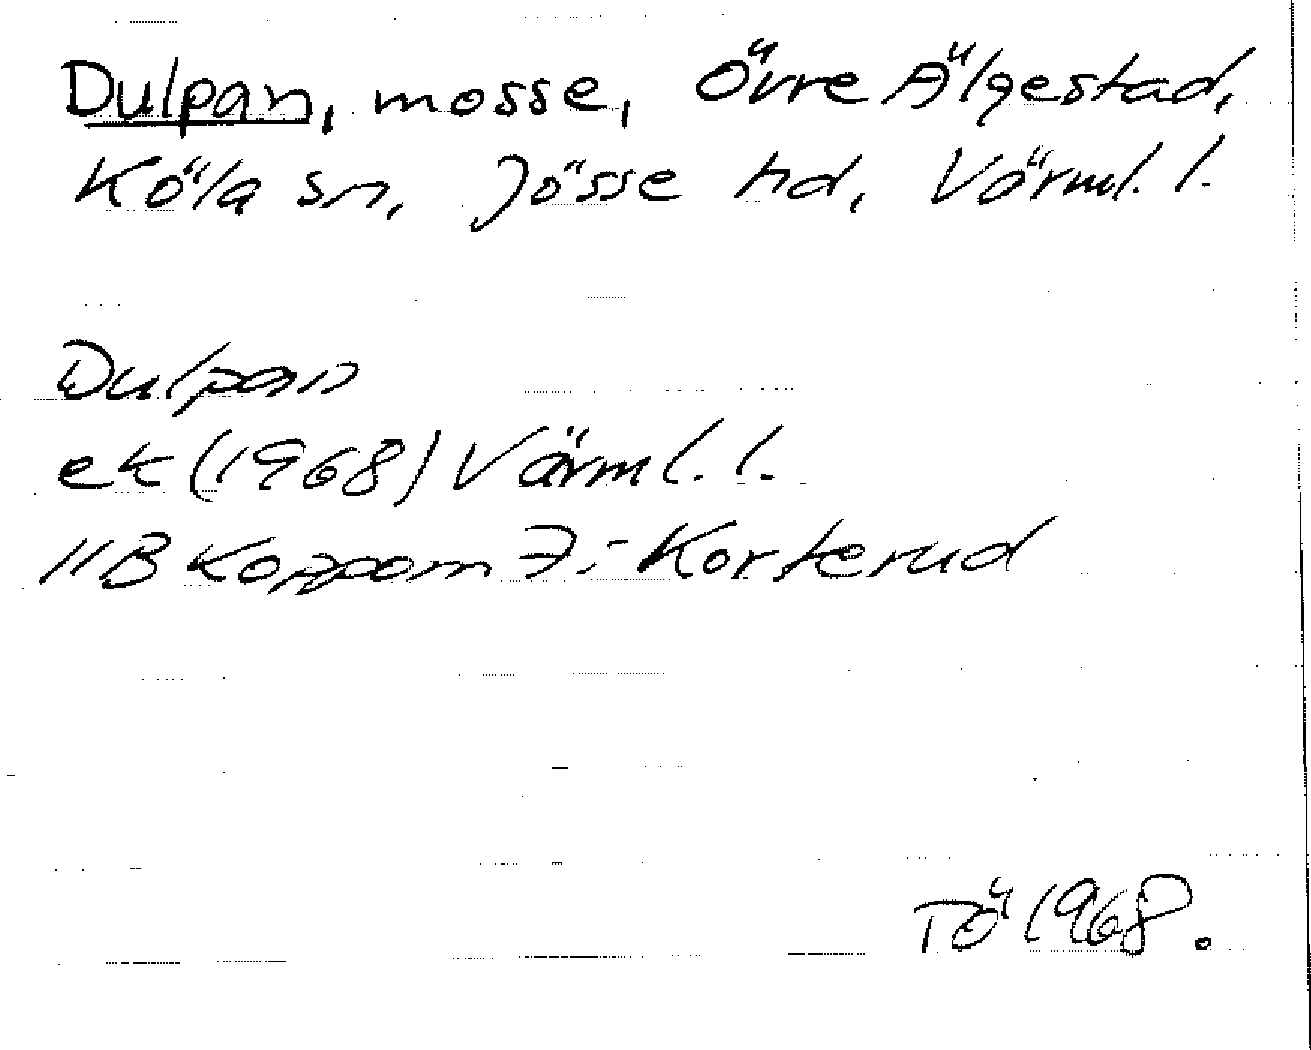 Dulpan, mosse, Övre Älgestad,
Köla sn, Jösse hd, Värml. l.
Dulpan
ek (1968) Värml. l.
11B Koppom 7: Korterud
Tö 1968.